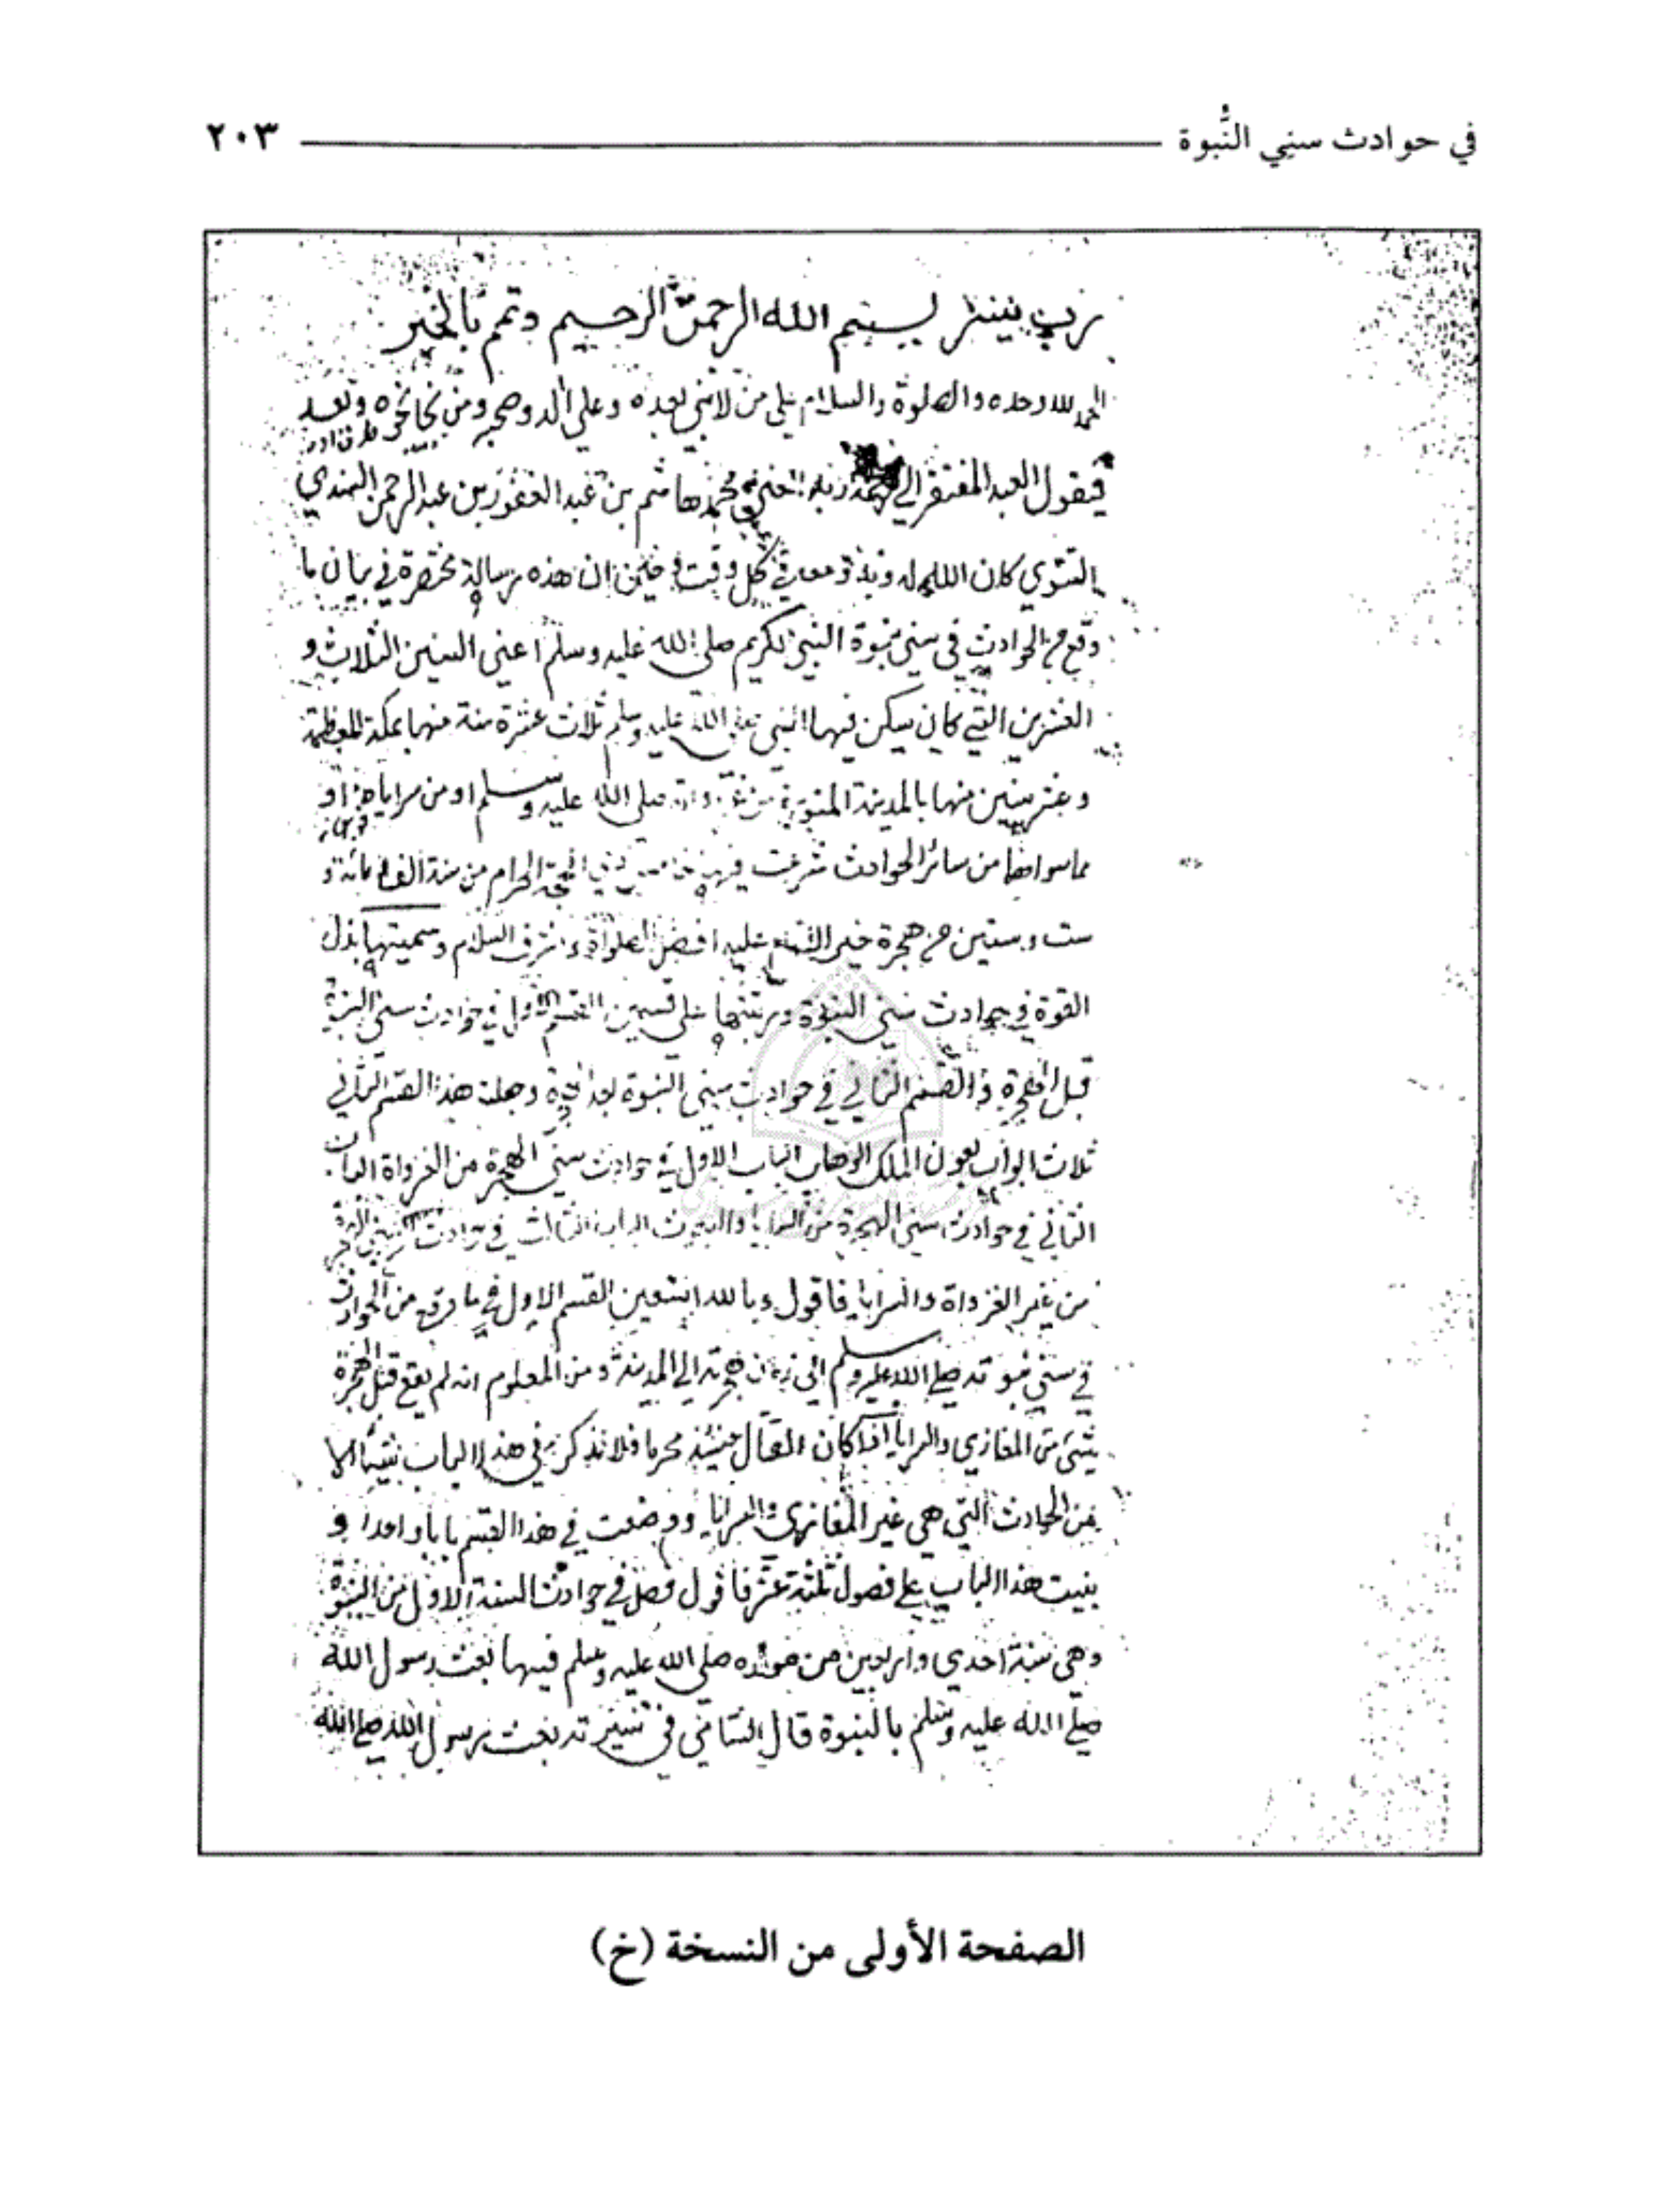 في حوادث سني النُّبوة ٢٠٣
رب يسر بسم الله الرحمن الرحيم وتمم بالخير
الحمد لله وحده والصلوة والسلام على من لا نبي بعده وعلى اله وصحبه ومن نحا نحوه وبعد
فيقول العبد المفتقر الي رحمة ربه الغني محمد هاشم بن عبد الغفور بن عبد الرحمن السندي
التتوي كان الله له وبه ومعه في كل وقت وحين ان هذه رسالة مختصرة في بيان ما
وقع من الحوادث في سني نبوة النبي الكريم صلى الله عليه وسلم اعني السنين الثلاث و
العشرين التي كان يسكن فيها النبي صلى الله عليه وسلم ثلاث عشرة سنة منها بمكة المعظمة
وعشر سنين منها بالمدينة المنورة من غزواته صلى الله عليه وسلم او من سراياه او
مما سواهما من سائر الحوادث شرعت فيها في ذي الحجة الحرام من سنة الف ومائة و
ست وستين من هجرة خير الانام عليه افضل الصلواة واشرف السلام وسميتها بذل
القوة في حوادث سني النبوة ورتبتها على قسمين القسم الاول في حوادث سني النبوة
قبل الهجرة والقسم الثاني في حوادث سني النبوة بعد الهجرة وجعلت هذا القسم الثاني
ثلاث ابواب بعون الملك الوهاب الباب الاول في حوادث سني الهجرة من الغزواة الباب
الثاني في حوادث سني الهجرة من السرايا والبعوث الباب الثالث في حوادث سني الهجرة
من غير الغزواة والسرايا فاقول وبالله استعين القسم الاول في ما وقع من الحوادث
في سني نبوته صلى الله عليه وسلم الي زمان هجرته الي المدينة ومن المعلوم انه لم يقع قبل الهجرة
شئ من المغازي والسرايا اذا كان القتال حينئذ محرما فلا نذكر في هذا الباب شيئا الا
من الحوادث التي هي غير المغازي والسرايا ووضعت في هذا القسم بابا واحدا و
بنيت هذا الباب على فصول ثلثة عشر فاقول فصل في حوادث السنة الاولى من النبوة
وهي سنة احدي واربعين من مولده صلى الله عليه وسلم فيها بعث رسول الله
صلى الله عليه وسلم بالنبوة قال الشامي في سيرته بعث رسول الله صلى الله
الصفحة الأولى من النسخة (خ)